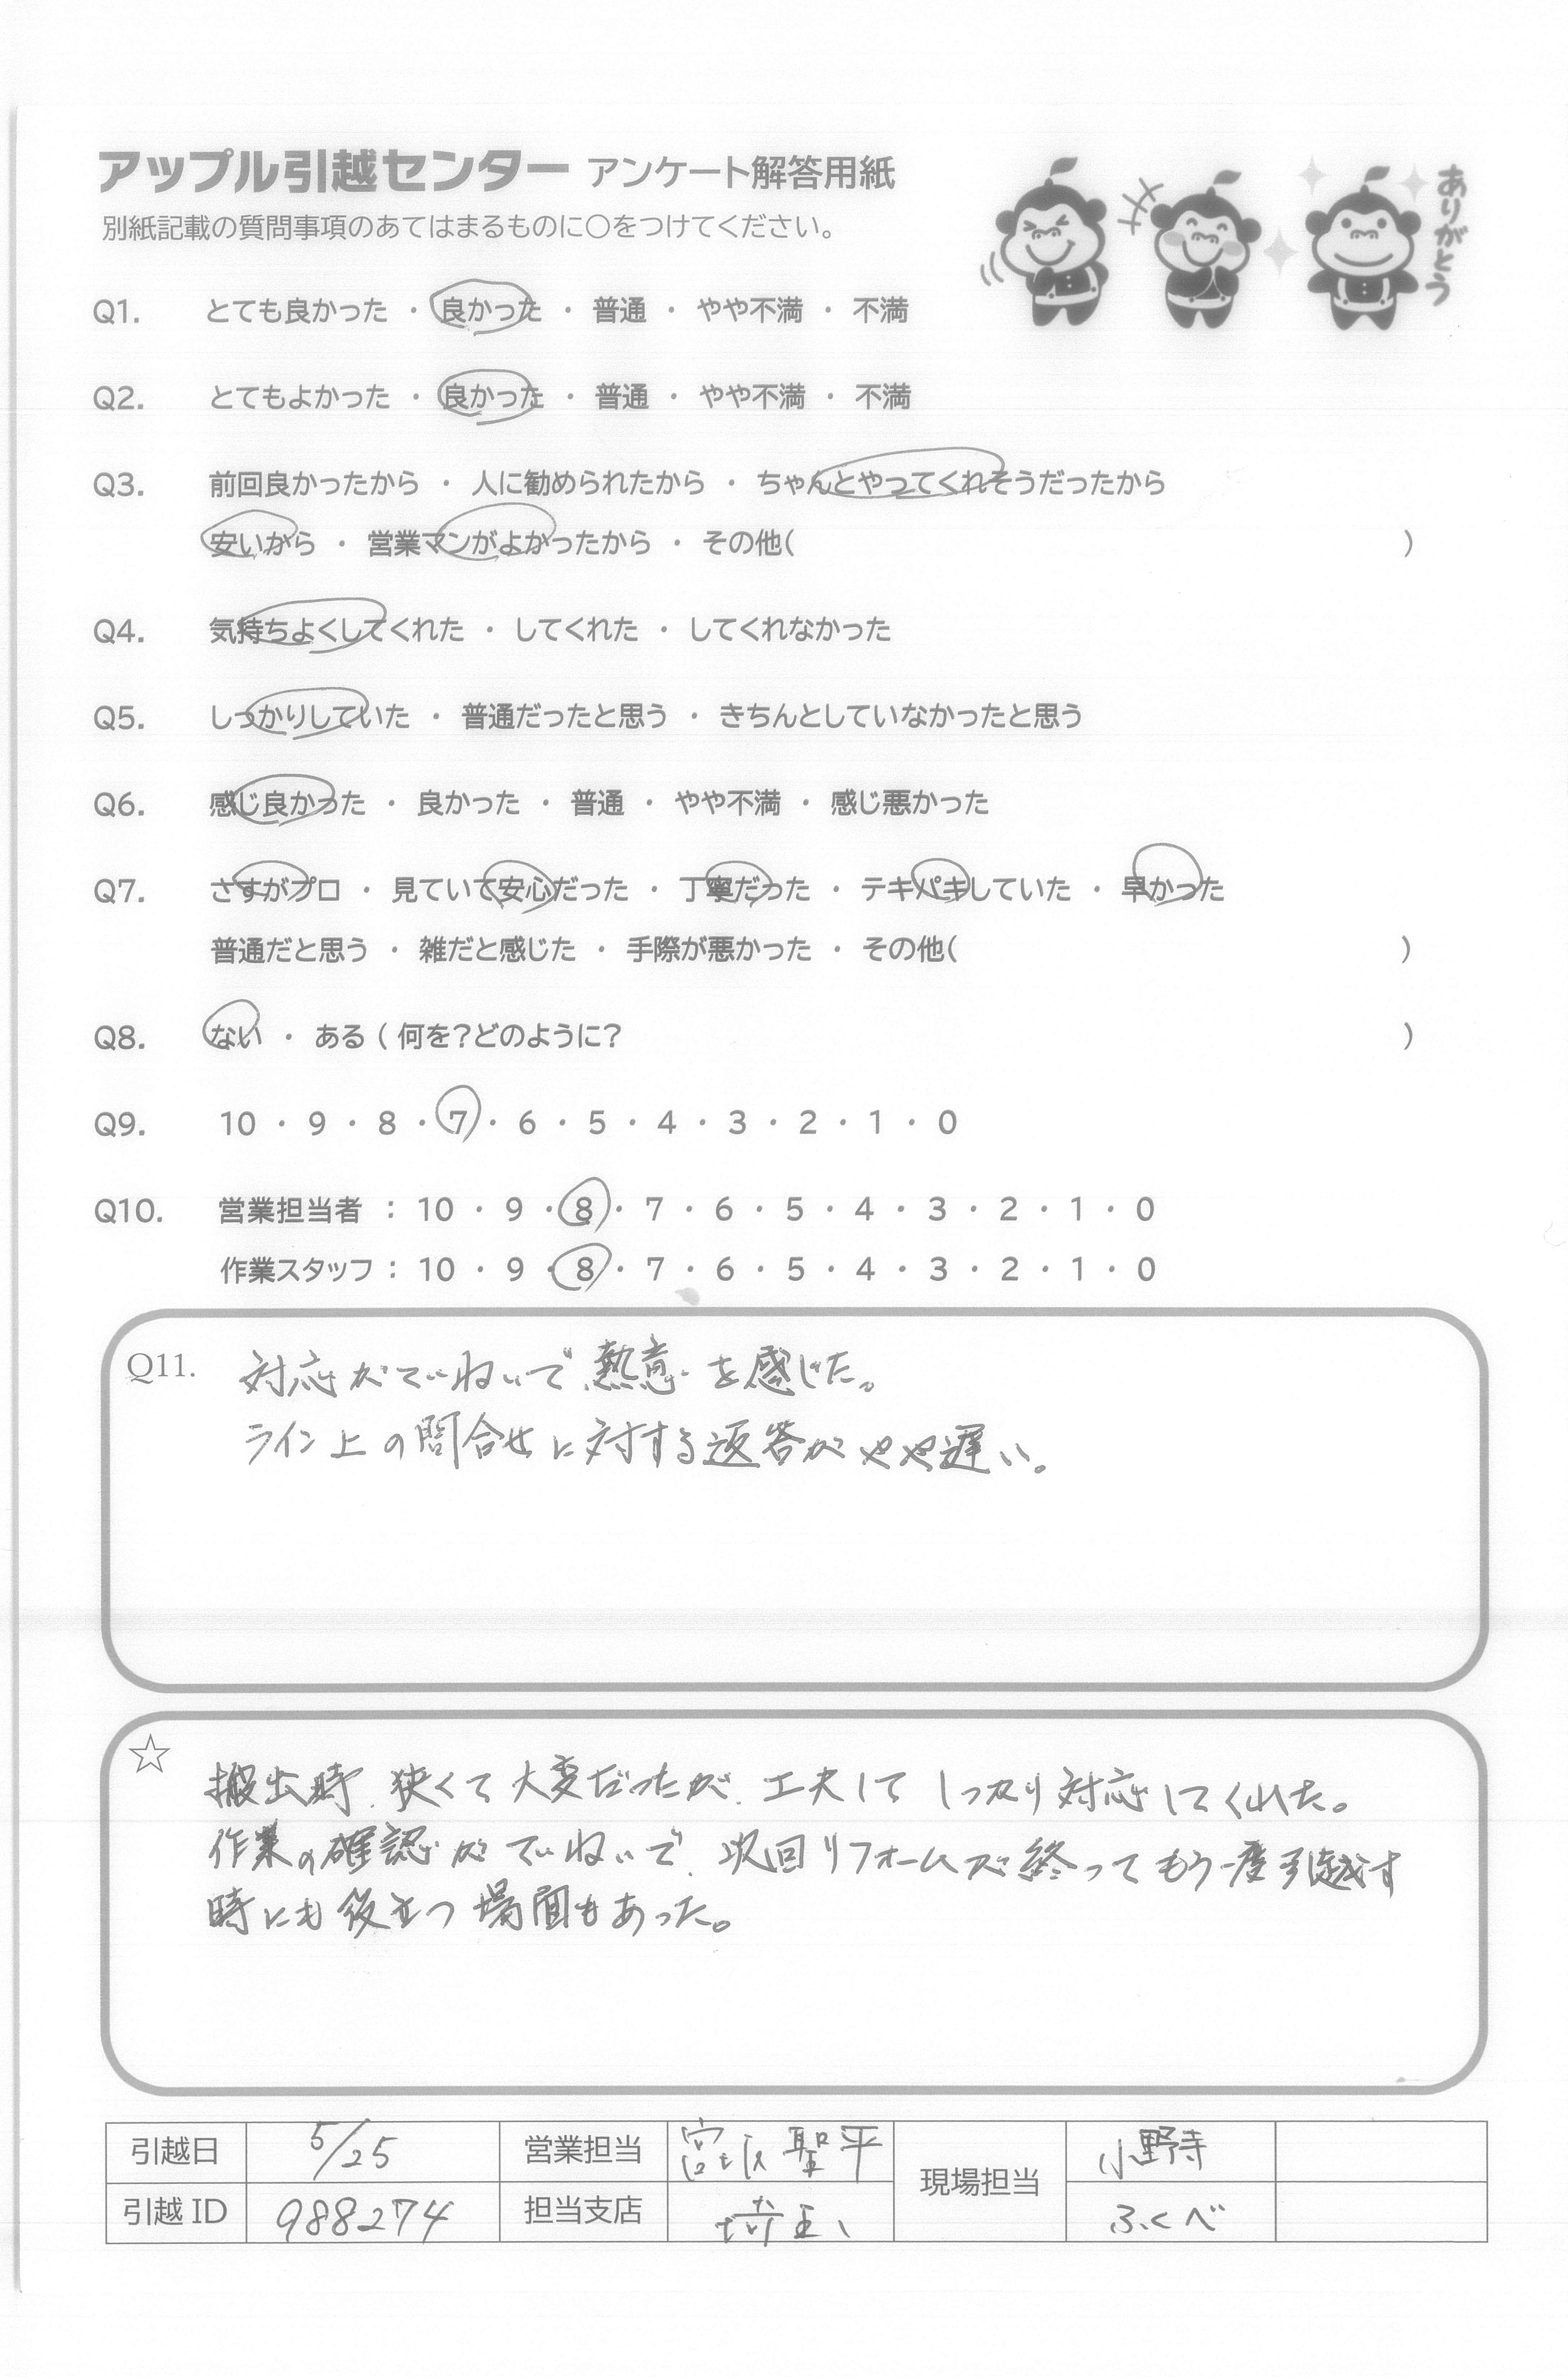 アップル引越センター アンケート解答用紙
別紙記載の質問事項のあてはまるものに○をつけてください。
ありがとう
Q1. とても良かった ・ 良かった ・ 普通 ・ やや不満 ・ 不満
Q2. とてもよかった ・ 良かった ・ 普通 ・ やや不満 ・ 不満
Q3. 前回良かったから ・ 人に勧められたから ・ ちゃんとやってくれそうだったから
安いから ・ 営業マンがよかったから ・ その他( )
Q4. 気持ちよくしてくれた ・ してくれた ・ してくれなかった
Q5. しっかりしていた ・ 普通だったと思う ・ きちんとしていなかったと思う
Q6. 感じ良かった ・ 良かった ・ 普通 ・ やや不満 ・ 感じ悪かった
Q7. さすがプロ ・ 見ていて安心だった ・ 丁寧だった ・ テキパキしていた ・ 早かった
普通だと思う ・ 雑だと感じた ・ 手際が悪かった ・ その他( )
Q8. ない ・ ある ( 何を?どのように? )
Q9. 10 ・ 9 ・ 8 ・ 7 ・ 6 ・ 5 ・ 4 ・ 3 ・ 2 ・ 1 ・ 0
Q10. 営業担当者 : 10 ・ 9 ・ 8 ・ 7 ・ 6 ・ 5 ・ 4 ・ 3 ・ 2 ・ 1 ・ 0
作業スタッフ : 10 ・ 9 ・ 8 ・ 7 ・ 6 ・ 5 ・ 4 ・ 3 ・ 2 ・ 1 ・ 0
Q11. 対応がていねいで熱意を感じた。
ライン上の問合せに対する返答がやや遅い。
☆ 搬出時、狭くて大変だったが、工夫してしっかり対応してくれた。
作業の確認がていねいで、次回リフォームが終ってもう一度引越す
時にも役立つ場面もあった。
引越日 5/25 営業担当 聖平 現場担当 小野寺
引越 ID 988274 担当支店 埼玉 ふくべ